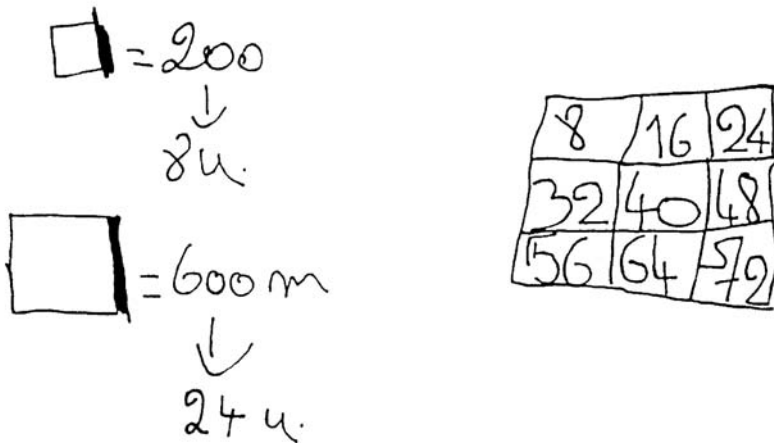 = 200
8u.
= 600 m
24 u.
8 16 24
32 40 48
56 64 72